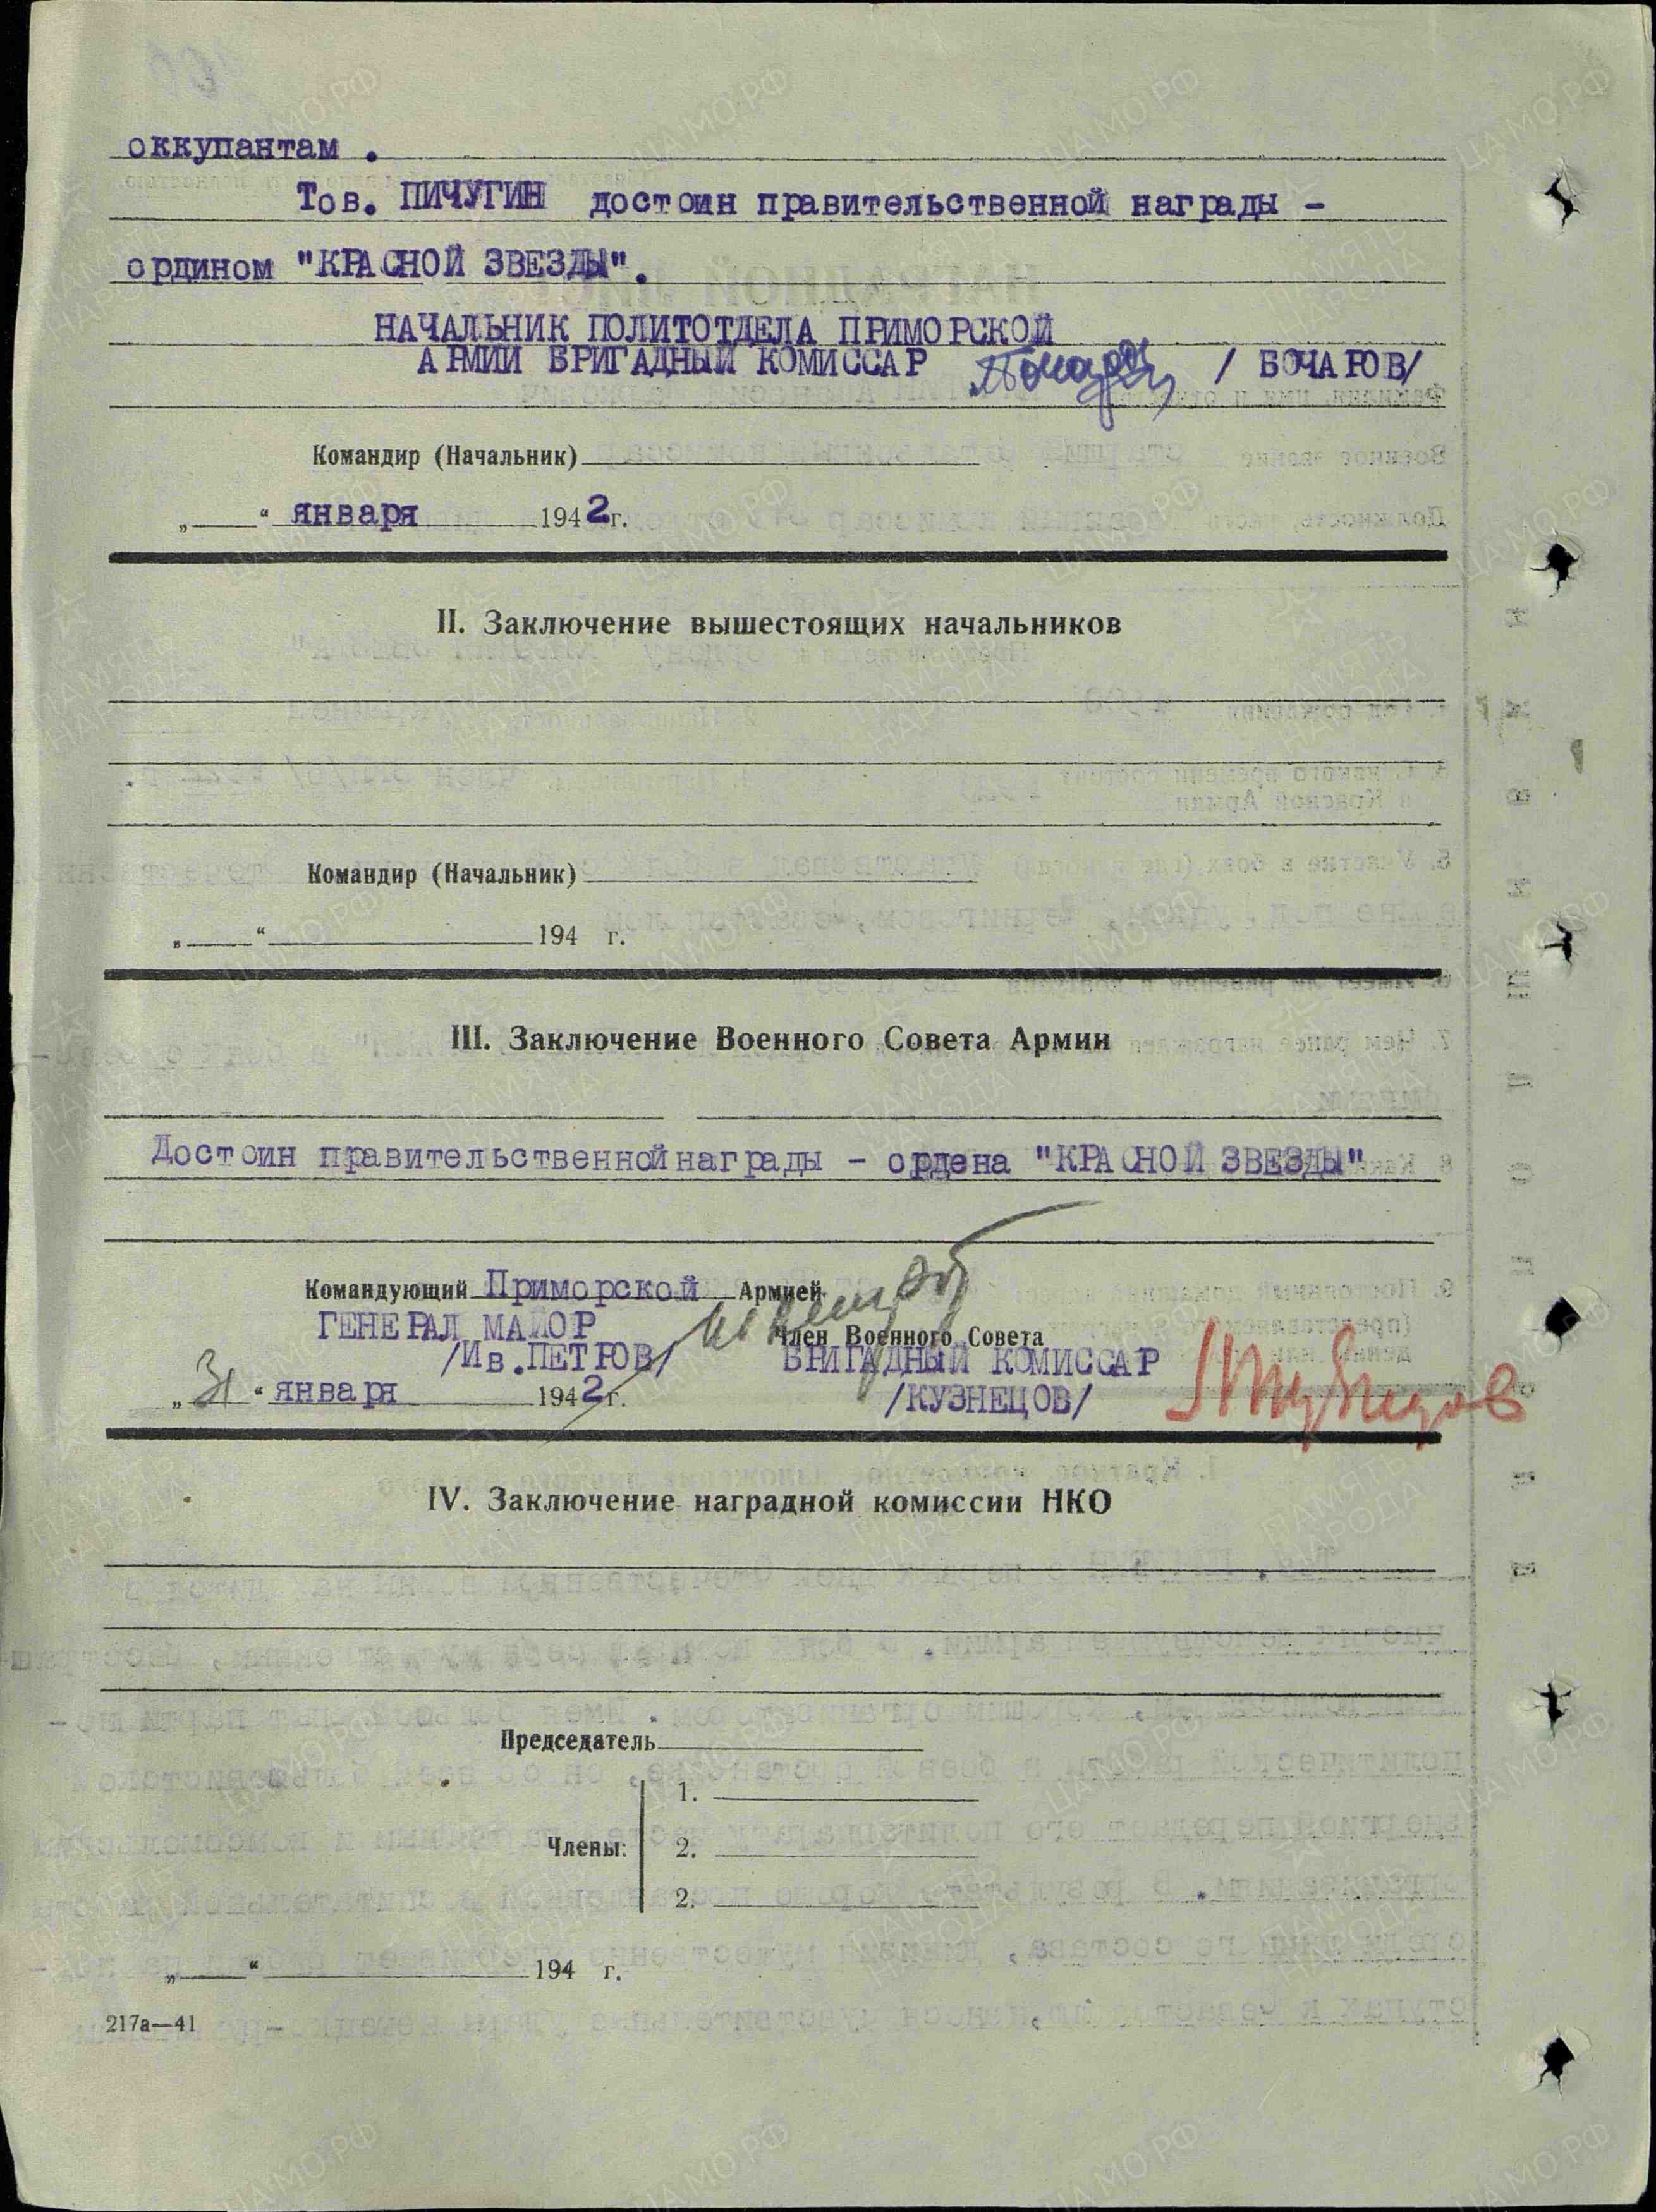 оккупантам .
Тов. ПИЧУГИН достоин правительственной награды -
ордином "КРАСНОЙ ЗВЕЗДЫ".
НАЧАЛЬНИК ПОЛИТОТДЕЛА ПРИМОРСКОЙ
АРМИИ БРИГАДНЫЙ КОМИССАР / БОЧАРОВ/
Командир (Начальник)
„ “ января 1942г.
II. Заключение вышестоящих начальников
Командир (Начальник)
„ “ 194 г.
III. Заключение Военного Совета Армии
Достоин правительственной награды - ордена "КРАСНОЙ ЗВЕЗДЫ"
Командующий Приморской Армией
ГЕНЕРАЛ МАЙОР
Член Военного Совета
/Ив.ПЕТРОВ/ БРИГАДНЫЙ КОМИССАР
„31“ января 1942г. /КУЗНЕЦОВ/ Кузнецов
IV. Заключение наградной комиссии НКО
Председатель
Члены:
1.
2.
2.
„ “ 194 г.
217а—41
ЦАМО.РФ
ПАМЯТЬ НАРОДА